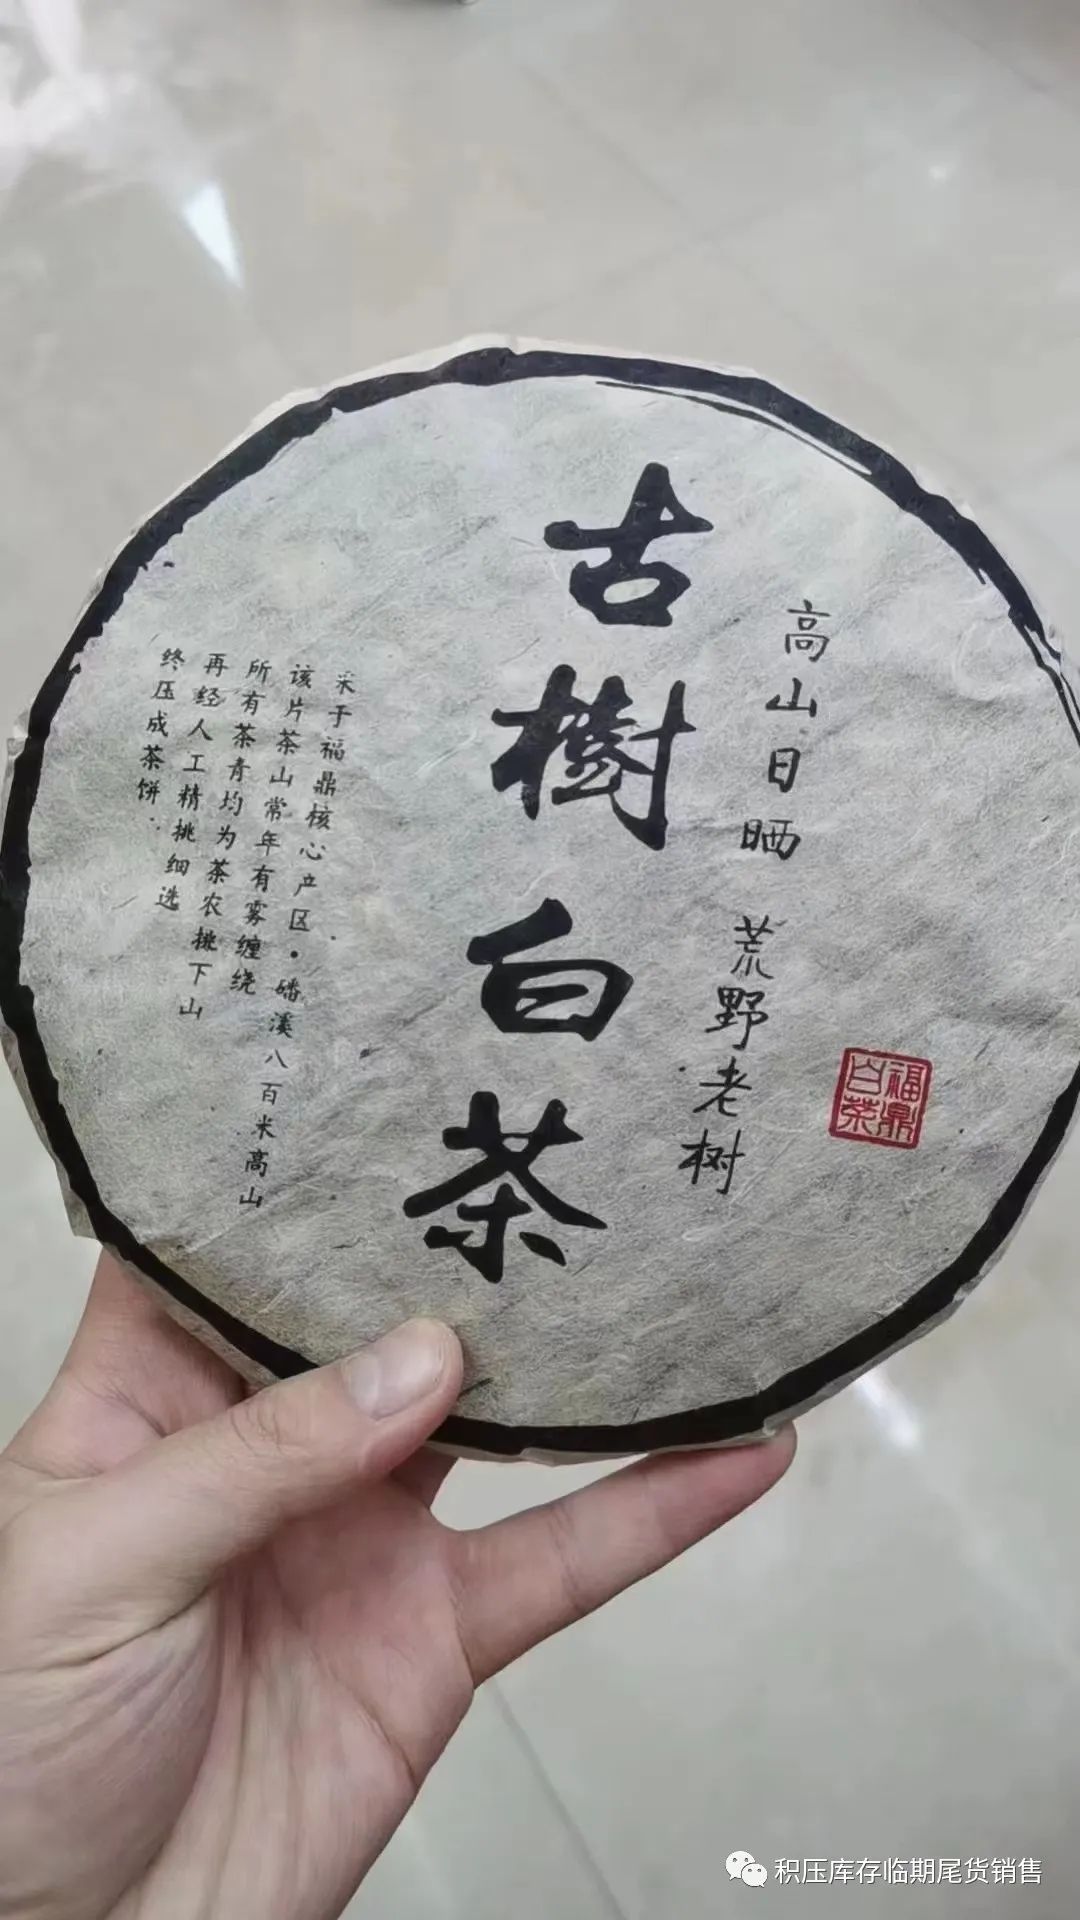 高山日晒 荒野老树
福鼎
白茶
古樹白茶
采于福鼎核心产区·磻溪八百米高山
该片茶山常年有雾缠绕
所有茶青均为茶农挑下山
再经人工精挑细选
终压成茶饼.
积压库存临期尾货销售